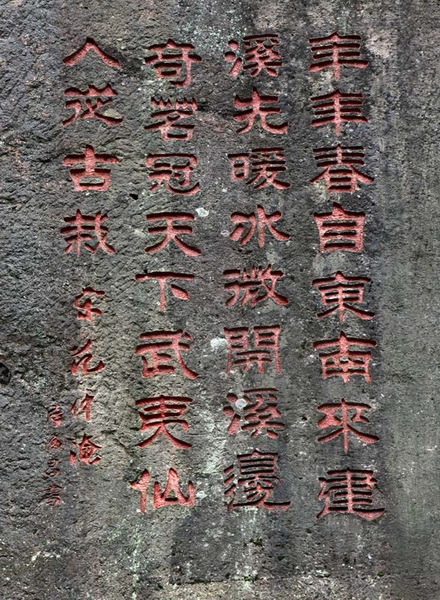 年年春自東南來建
溪先暖水微開溪邊
奇茗冠天下武夷仙
人從古栽 宋范仲淹